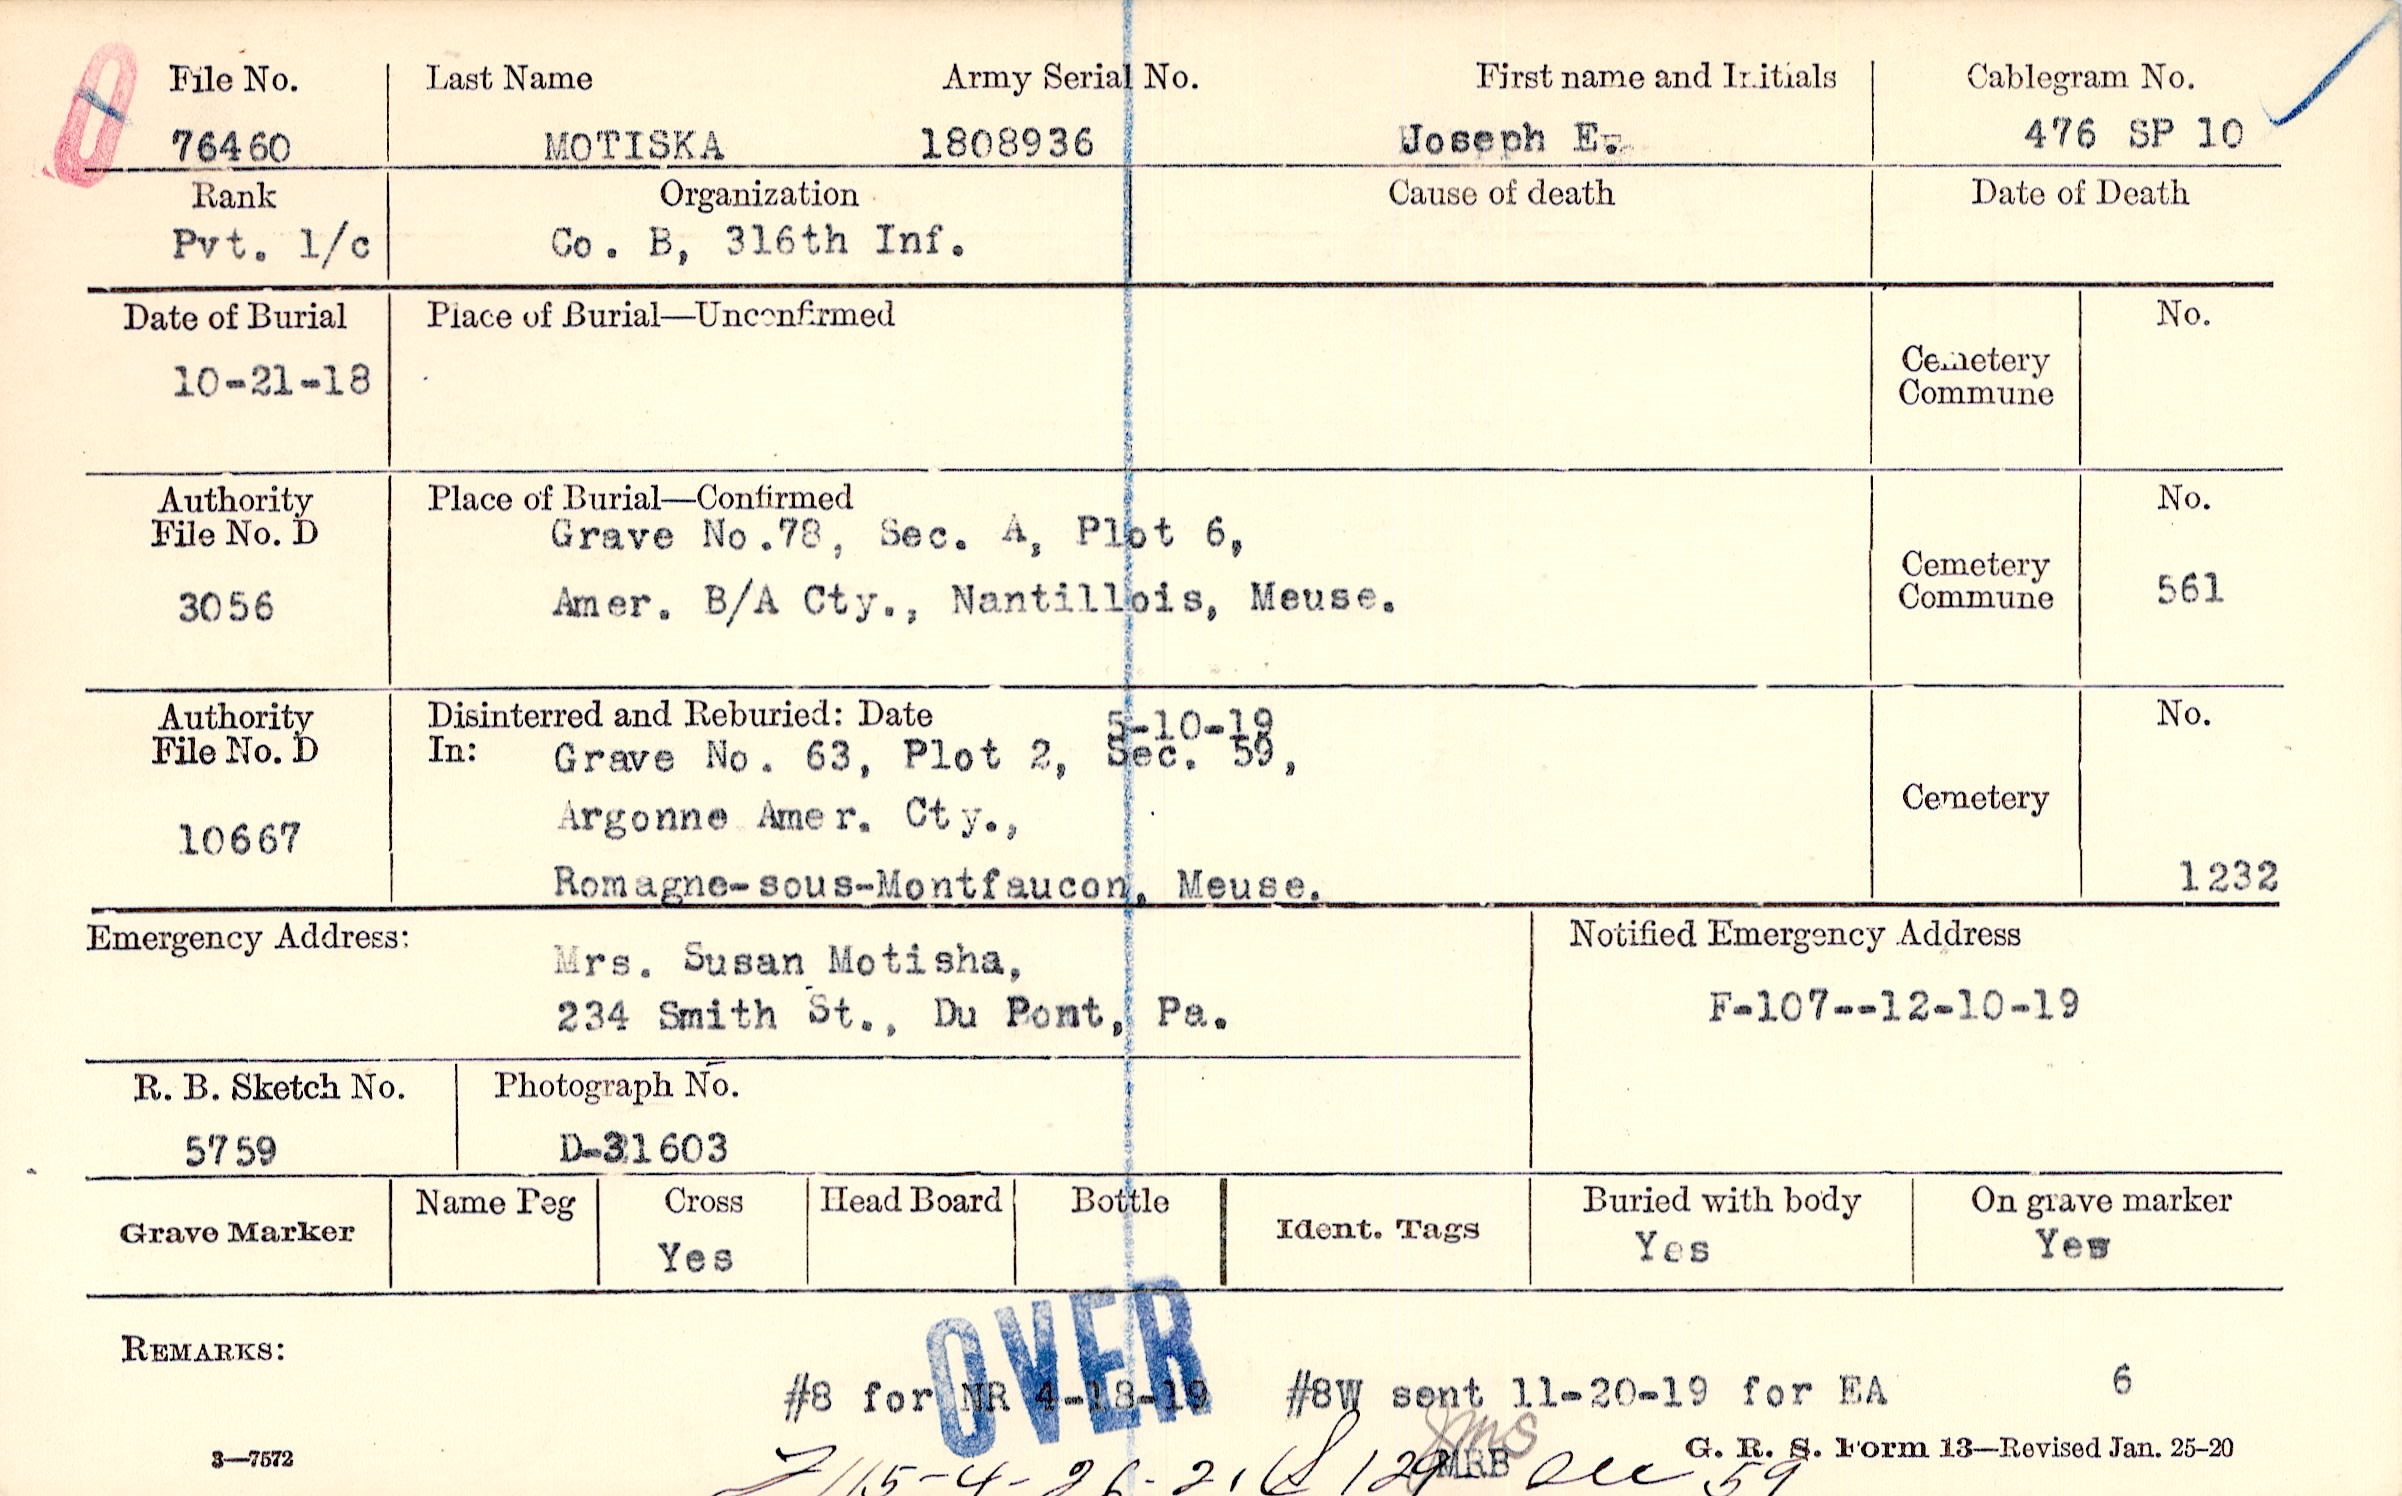 File No. Last Name Army Serial No. First name and Initials Cablegram No.
76460 MOTISKA 1808936 Joseph E. 476 SP 10
Rank Organization Cause of death Date of Death
Pvt. 1/c Co. B, 316th Inf.
Date of Burial Place of Burial—Unconfirmed No.
10-21-18 Cemetery
Commune
Authority Place of Burial—Confirmed No.
File No. D Grave No.78, Sec. A, Plot 6,
Cemetery
3056 Amer. B/A Cty., Nantillois, Meuse. Commune 561
Authority Disinterred and Reburied: Date 5-10-19 No.
File No. D In: Grave No. 63, Plot 2, Sec. 59,
Argonne Amer. Cty., Cemetery
10667
Romagne-sous-Montfaucon, Meuse. 1232
Emergency Address: Notified Emergency Address
Mrs. Susan Motisha,
234 Smith St., Du Pont, Pa. F-107--12-10-19
R. B. Sketch No. Photograph No.
5759 D-31603
Grave Marker Name Peg Cross Head Board Bottle Ident. Tags Buried with body On grave marker
Yes Yes Yes
OVER
REMARKS:
#8 for NR 4-18-19 #8W sent 11-20-19 for EA 6
MRB
3—7572 G. R. S. Form 13—Revised Jan. 25-20